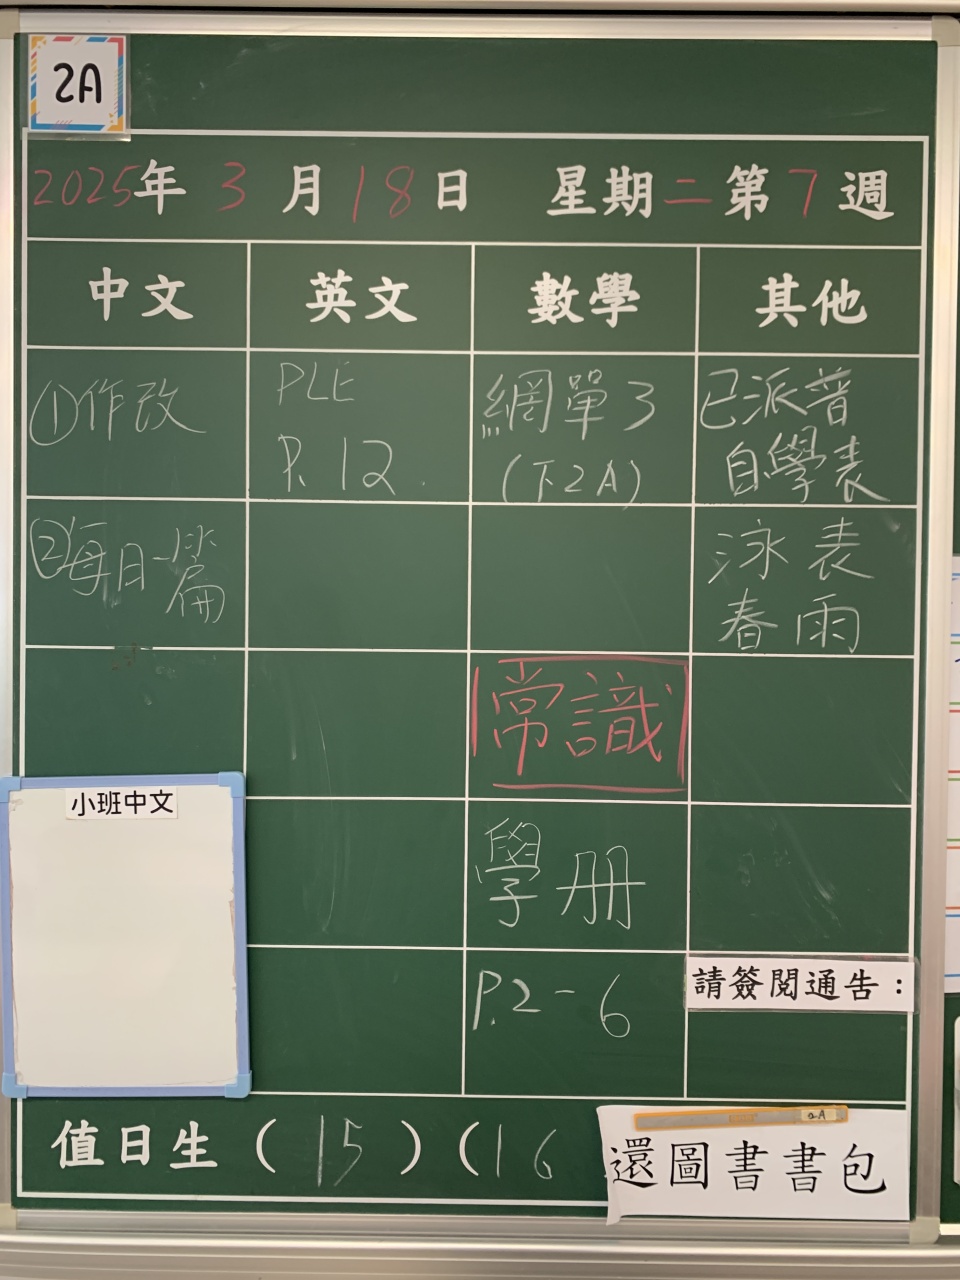 2A
2025年3月18日 星期二第7週
中文 英文 數學 其他
①作改
②每日一篇
PLE
P.12.
網單3
(下2A)
常識
學册
P.2-6
已派普
自學表
泳表
春雨
小班中文
請簽閱通告：
值日生(15)(16
2A
還圖書書包